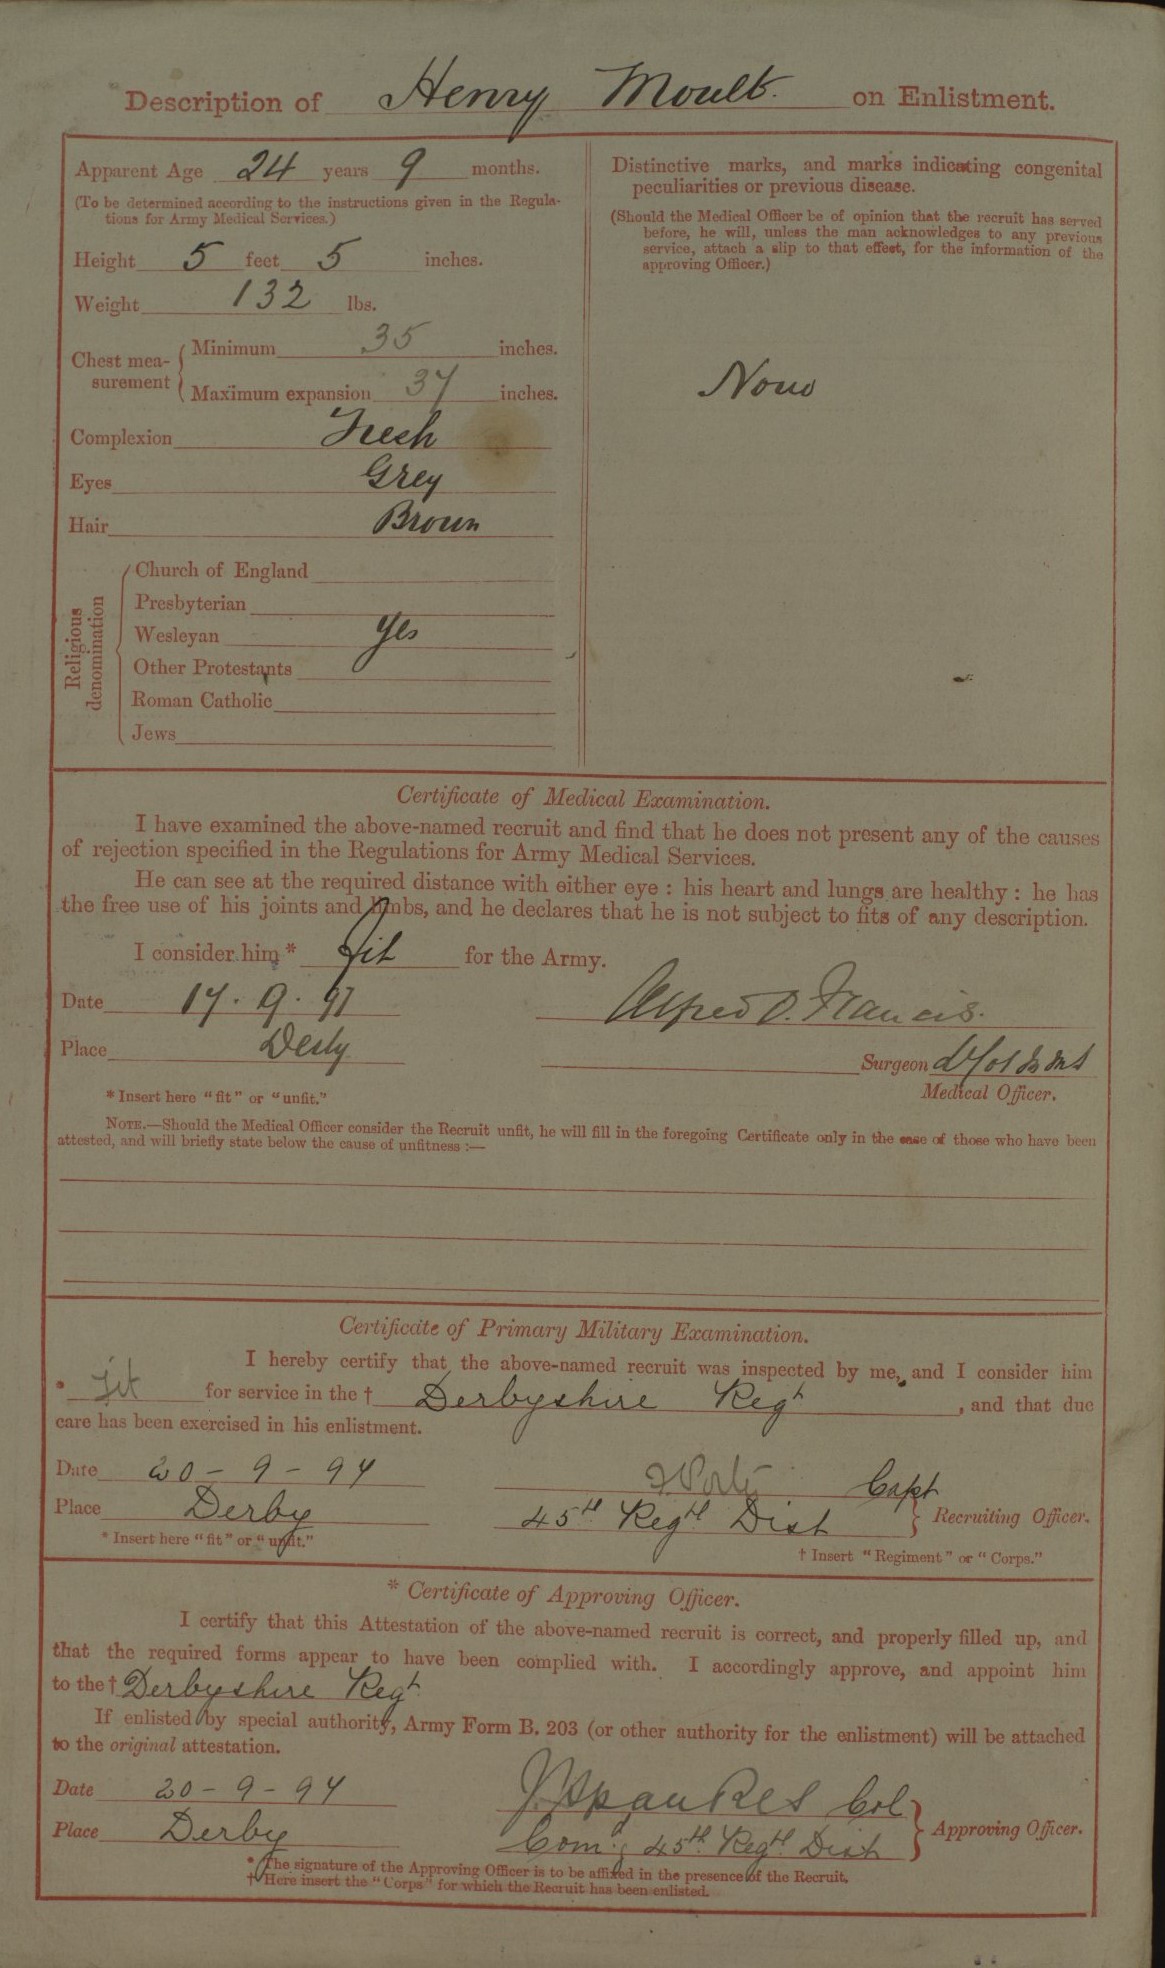 Description of Henry Moult. on Enlistment.
Apparent Age 24 years 9 months.
(To be determined according to the instructions given in the Regula-
tions for Army Medical Services.)
Height 5 feet 5 inches.
Weight 132 lbs.
Chest mea-
surement
Minimum 35 inches.
Maximum expansion 37 inches.
Complexion Fresh
Eyes Grey
Hair Brown
Religious
denomination
Church of England
Presbyterian
Wesleyan Yes
Other Protestants
Roman Catholic
Jews
Distinctive marks, and marks indicating congenital
peculiarities or previous disease.
(Should the Medical Officer be of opinion that the recruit has served
before, he will, unless the man acknowledges to any previous
service, attach a slip to that effect, for the information of the
approving Officer.)
None
Certificate of Medical Examination.
I have examined the above-named recruit and find that he does not present any of the causes
of rejection specified in the Regulations for Army Medical Services.
He can see at the required distance with either eye : his heart and lungs are healthy : he has
the free use of his joints and limbs, and he declares that he is not subject to fits of any description.
I consider him * fit for the Army.
Date 17 . 9 . 97
Alfred O. Francis.
Place Derby
Surgeon
Medical Officer.
* Insert here "fit" or "unfit."
NOTE.—Should the Medical Officer consider the Recruit unfit, he will fill in the foregoing Certificate only in the case of those who have been
attested, and will briefly state below the cause of unfitness :—
Certificate of Primary Military Examination.
I hereby certify that the above-named recruit was inspected by me, and I consider him
* fit for service in the † Derbyshire Regt, and that due
care has been exercised in his enlistment.
Date 20 - 9 - 97
Capt
Place Derby
45th Regtl Dist
Recruiting Officer.
* Insert here "fit" or "unfit."
† Insert "Regiment" or "Corps."
* Certificate of Approving Officer.
I certify that this Attestation of the above-named recruit is correct, and properly filled up, and
that the required forms appear to have been complied with. I accordingly approve, and appoint him
to the † Derbyshire Regt.
If enlisted by special authority, Army Form B. 203 (or other authority for the enlistment) will be attached
to the original attestation.
Date 20 - 9 - 97
Col
Place Derby
Comg 45th Regtl Dist
Approving Officer.
* The signature of the Approving Officer is to be affixed in the presence of the Recruit.
† Here insert the "Corps" for which the Recruit has been enlisted.